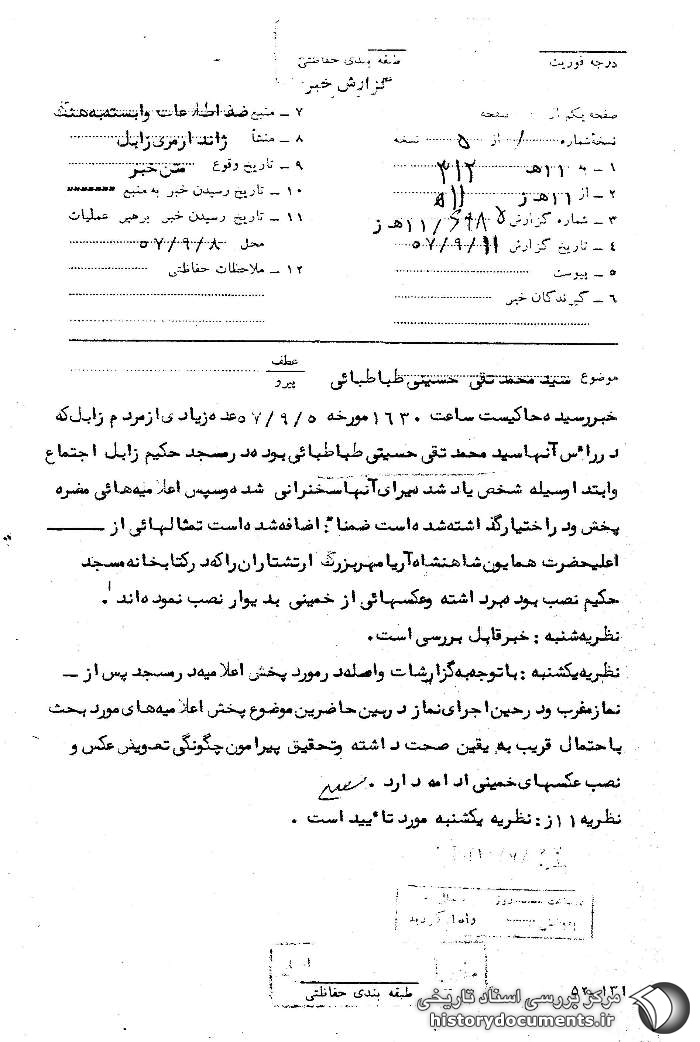 درجه فوریت
طبقه بندی حفاظتی
گزارش خبر
صفحه یکم از صفحه
نسخه شماره ۱ از ۵ نسخه
۱ - به ۱۱هـ ۳۱۲
۲ - از ۱۱هـ ز
۳ - شماره گزارش
۴ - تاریخ گزارش ۵۷/۹/۱۱
۵ - پیوست
۶ - گیرندگان خبر
۷ - منبع ضد اطلاعات وابسته به هنگ
۸ - منشأ ژاندارمری زابل
۹ - تاریخ وقوع متن خبر
۱۰ - تاریخ رسیدن خبر به منبع
۱۱ - تاریخ رسیدن خبر برهبر عملیات
محل ۵۷/۹/۸
۱۲ - ملاحظات حفاظتی
موضوع سید محمد تقی حسینی طباطبائی
عطف
پیرو
خبر رسیده حاکیست ساعت ۱۶۳۰ مورخه ۵۷/۹/۵ عده زیادی از مردم زابل که
در رأس آنها سید محمد تقی حسینی طباطبائی بوده در مسجد حکیم زابل اجتماع
وابتدا وسیله شخص یاد شده برای آنها سخنرانی شده وسپس اعلامیه هائی مضره
پخش ودر اختیار گذاشته شده است ضمنا": اضافه شده است تمثالهائی از
اعلیحضرت همایون شاهنشاه آریامهر بزرگ ارتشتاران را که در کتابخانه مسجد
حکیم نصب بوده برداشته وعکسهائی از خمینی بدیوار نصب نموده اند.
نظریه شنبه : خبر قابل بررسی است.
نظریه یکشنبه : با توجه به گزارشات واصله در مورد پخش اعلامیه در مسجد پس از
نماز مغرب ودر حین اجرای نماز در بین حاضرین موضوع پخش اعلامیه های مورد بحث
باحتمال قریب به یقین صحت داشته وتحقیق پیرامون چگونگی تعویض عکس و
نصب عکسهای خمینی ادامه دارد.
نظریه ۱۱ز: نظریه یکشنبه مورد تائید است .
طبقه بندی حفاظتی
مرکز بررسی اسناد تاریخی
historydocuments.ir